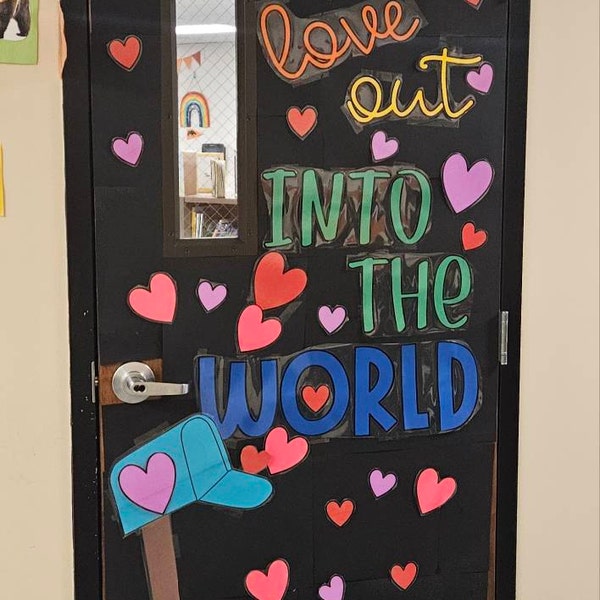 love
out
INTO
THe
WORLD